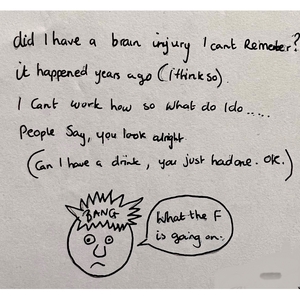 did I have a brain injury I cant Remeber?
it happened years ago (I think so).
I Cant work how so what do I do.....
People Say, you look alright.
(Can I have a drink, you just had one. OK.)
BANG
What the F
is going on.